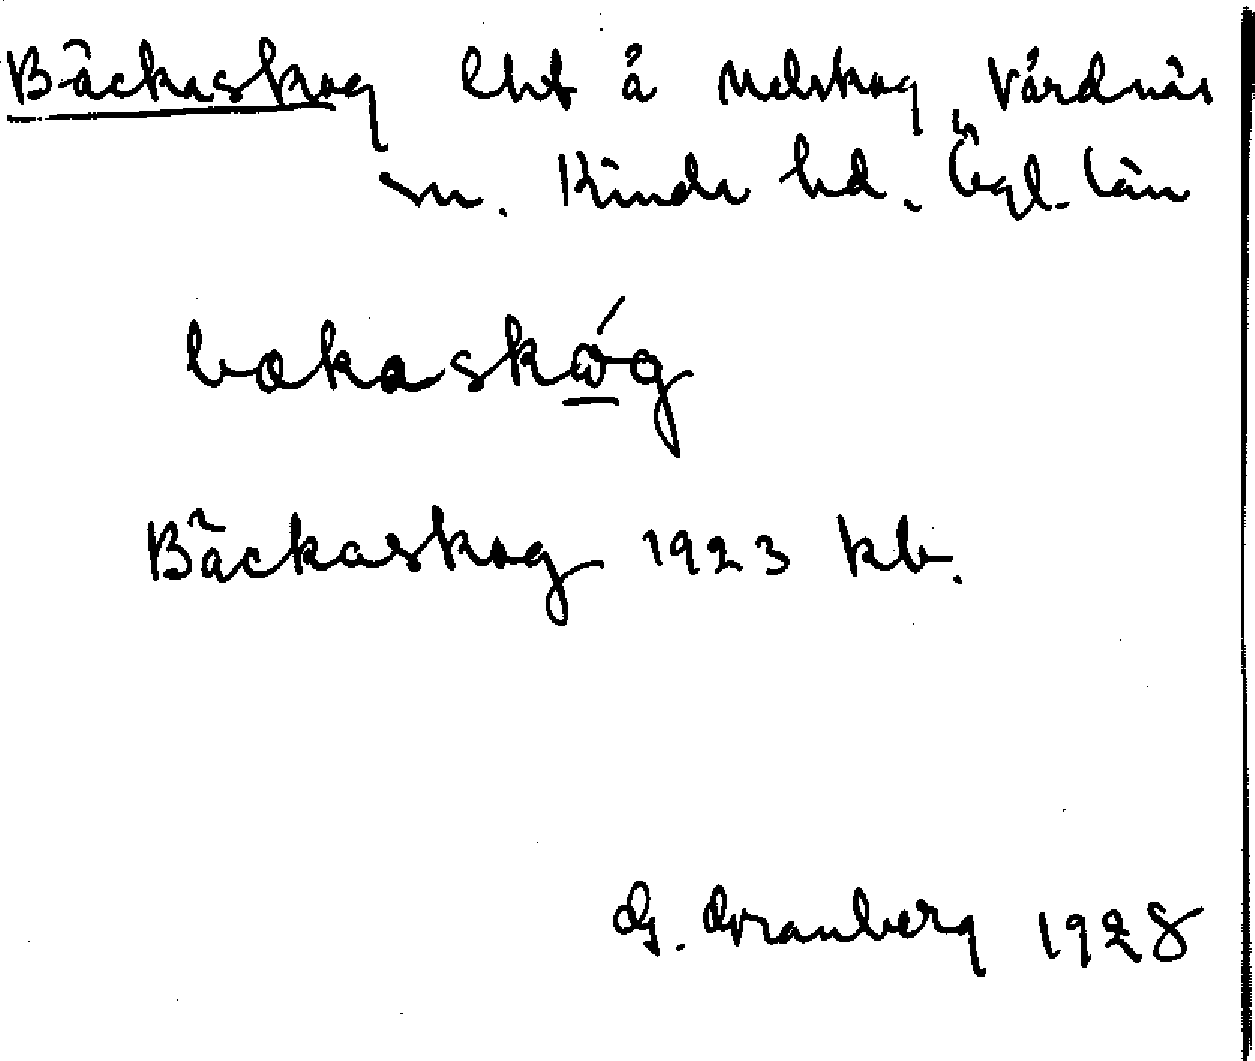 Bäckaskog lht å Melskog Vårdnäs
sn. Kinda hd. Ögl. län
bakaskóg
Bäckaskog 1923 kb.
G. Granberg 1928